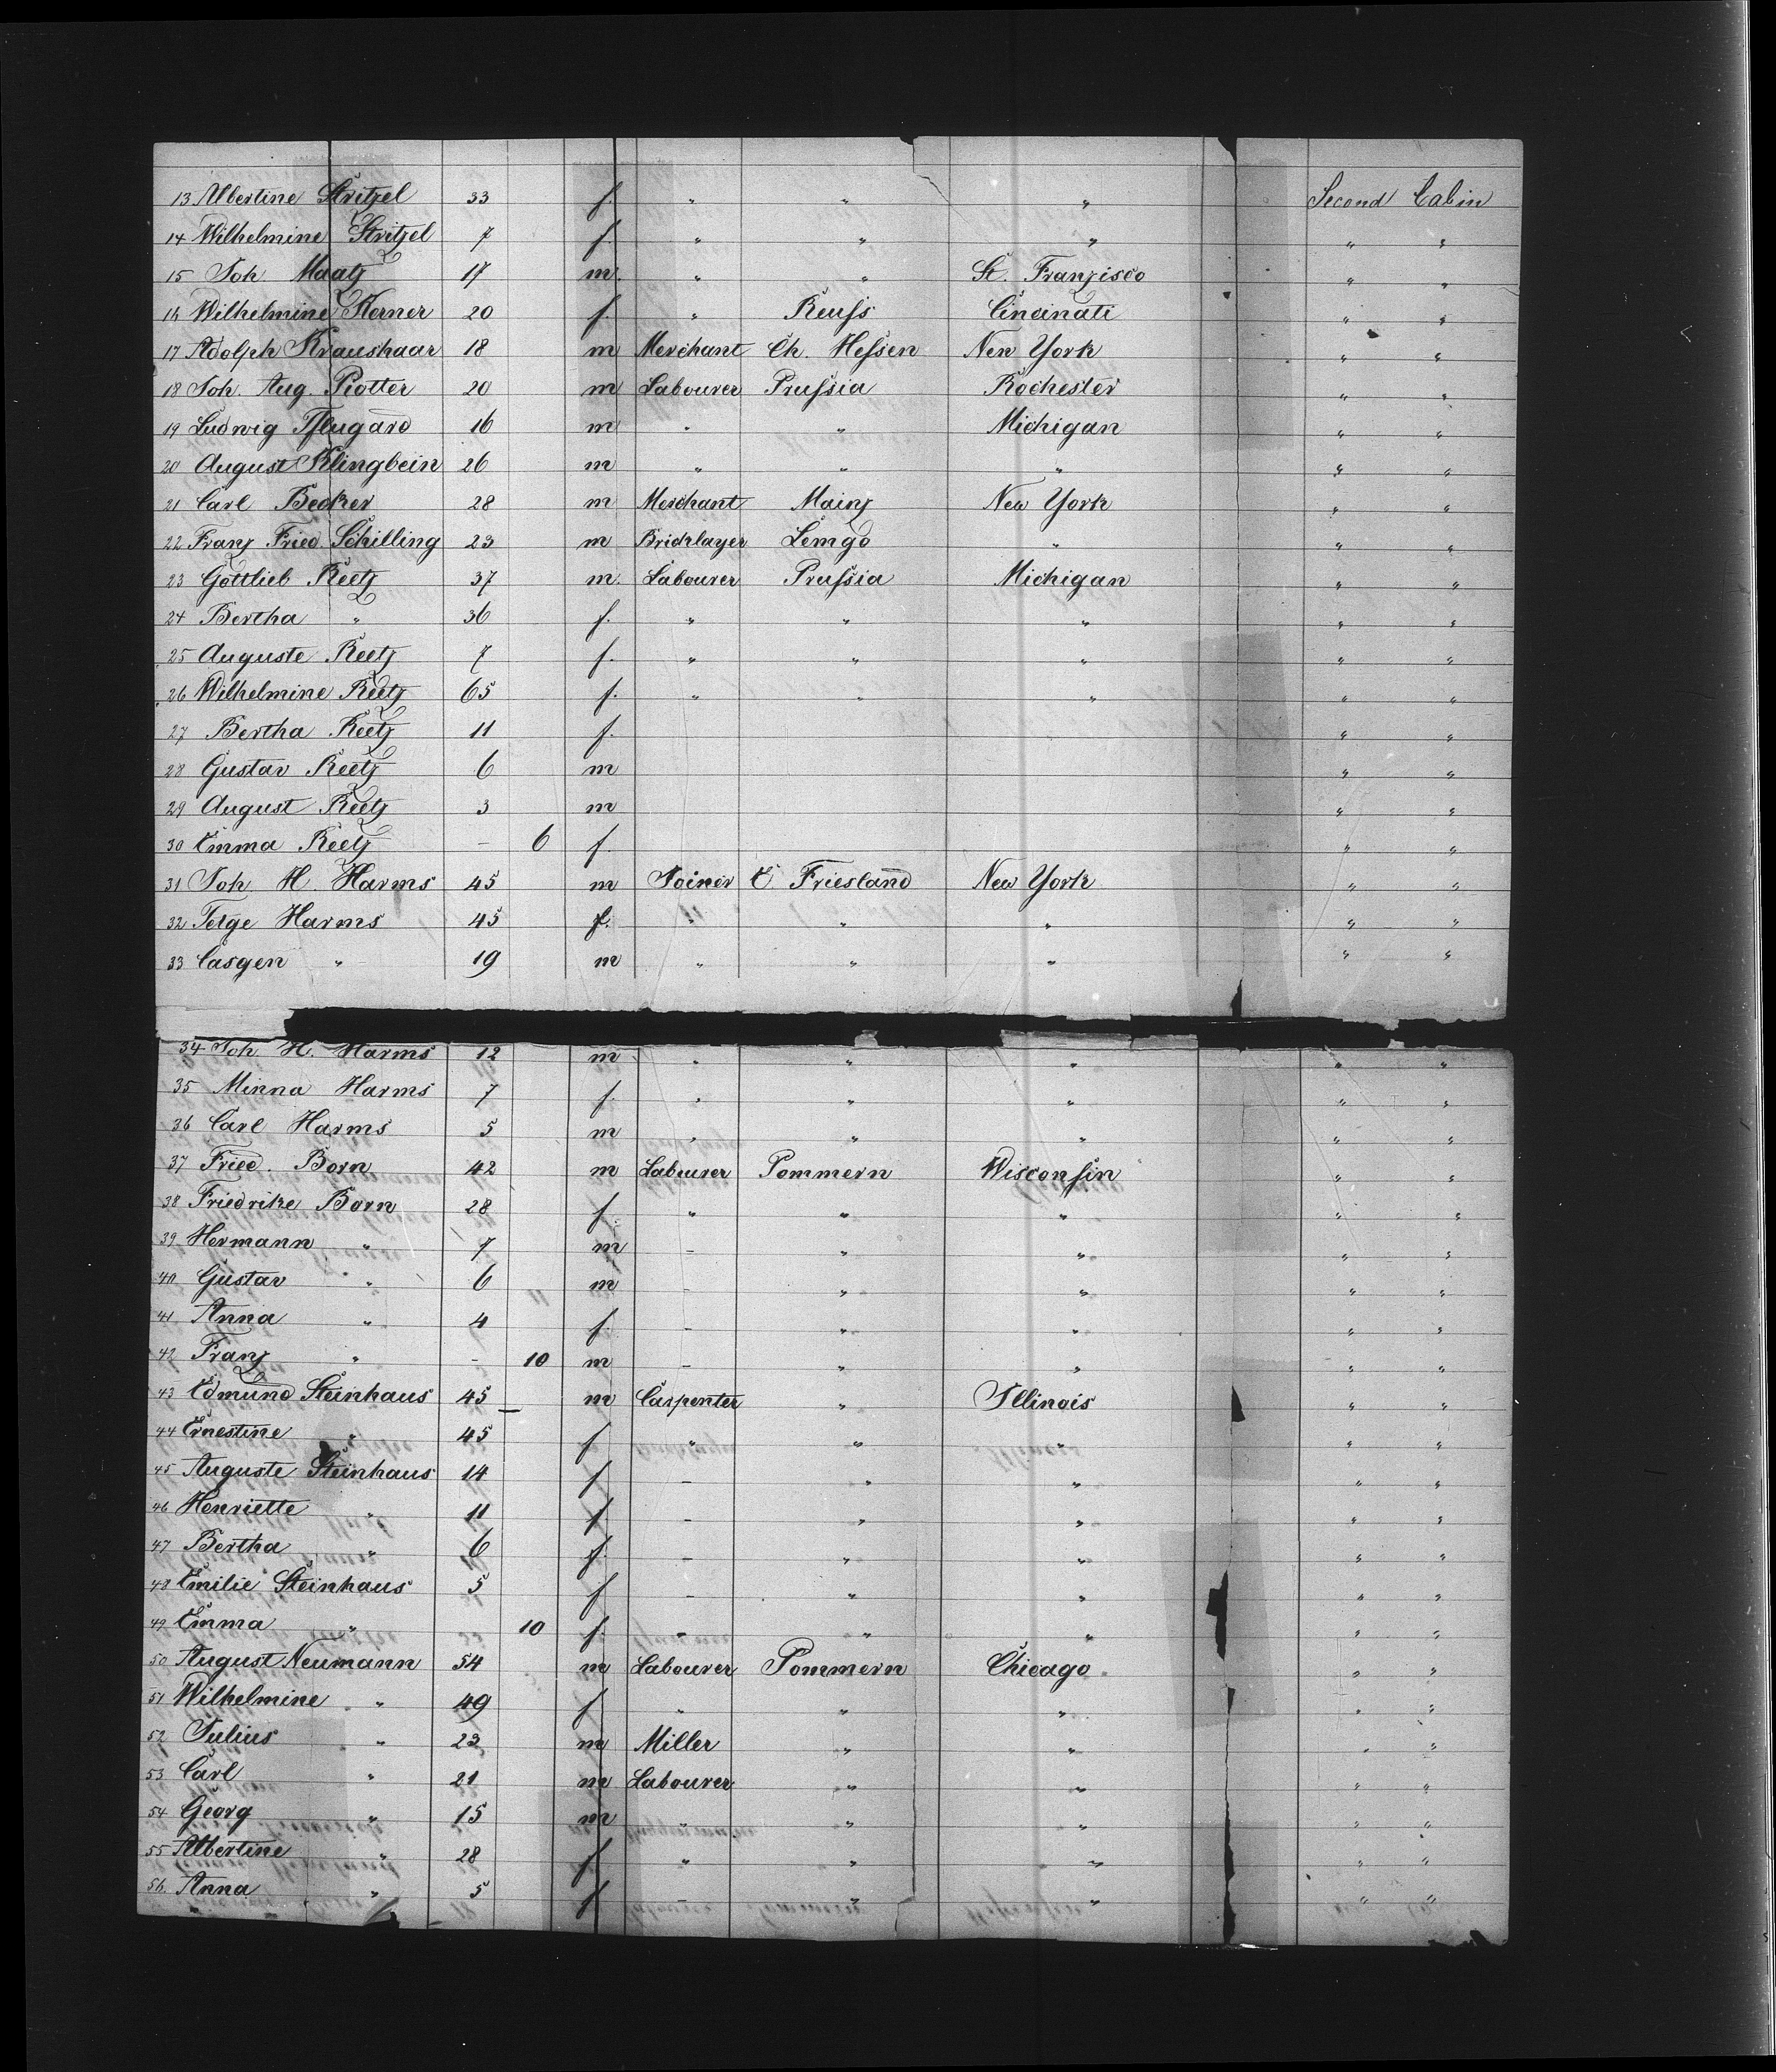 13 Albertine Stritzel 33 f. " " " Second Cabin
14 Wilhelmine Stritzel 7 f. " " " " "
15 Joh Maatz 17 m. " " St. Franzisco " "
16 Wilhelmine Kerner 20 f. " Reuſs Cincinati " "
17 Adolph Kraushaar 18 m Merchant Ch. Heſsen New York " "
18 Joh. Aug. Piotter 20 m Labourer Pruſsia Rochester " "
19 Ludwig Pflugard 16 m " " Michigan " "
20 August Klingbein 26 m " " " " "
21 Carl Becker 28 m Merchant Mainz New York " "
22 Franz Fried. Schilling 23 m Bricklayer Lemgo " " "
23 Gottlieb Reetz 37 m. Labourer Pruſsia Michigan " "
24 Bertha " 36 f. " " " " "
25 Auguste Reetz 7 f. " " " " "
26 Wilhelmine Reetz 65 f. " " " " "
27 Bertha Reetz 11 f. " "
28 Gustav Reetz 6 m " "
29 August Reetz 3 m " "
30 Emma Reetz - 6 f. " "
31 Joh. H. Harms 45 m Joiner O. Friesland New York " "
32 Tetge Harms 45 f. " " " " "
33 Casgen " 19 m " " " " "
34 Joh. H. Harms 12 m " " " " "
35 Minna Harms 7 f. " " " " "
36 Carl Harms 5 m " " " " "
37 Fried. Born 42 m Labourer Pommern Wisconſin " "
38 Friedrike Born 28 f. " " " " "
39 Hermann " 7 m - " " " "
40 Gustav " 6 m - " " " "
41 Anna " 4 f. - " " " "
42 Franz " - 10 m - " " " "
43 Edmund Steinhaus 45 m Carpenter " Illinois " "
44 Ernestine " 45 f " " " " "
45 Auguste Steinhaus 14 f - " " " "
46 Henriette " 11 f. - " " " "
47 Bertha " 6 f. - " " " "
48 Emilie Steinhaus 5 f - " " " "
49 Emma " 10 f. - " " " "
50 August Neumann 54 m Labourer Pommern Chicago " "
51 Wilhelmine " 49 f " " " " "
52 Julius " 23 m Miller " " " "
53 Carl " 21 m Labourer " " " "
54 Georg " 15 m " " " " "
55 Albertine " 28 f " " " " "
56. Anna " 5 f - " " " "